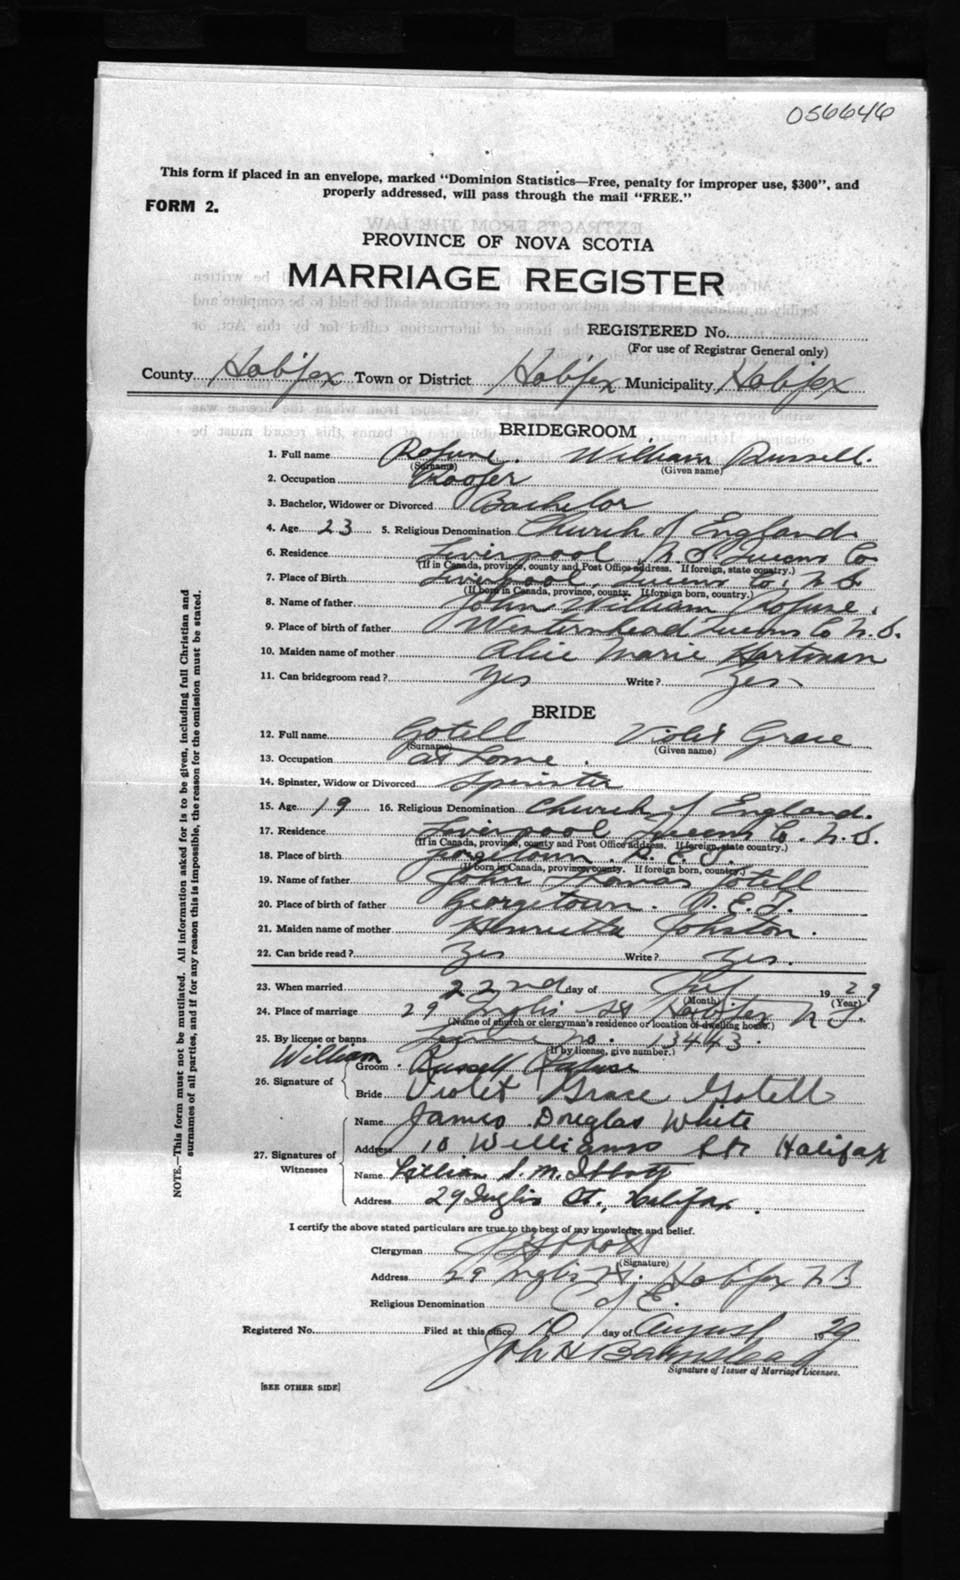 056646
This form if placed in an envelope, marked "Dominion Statistics—Free, penalty for improper use, $300", and
properly addressed, will pass through the mail "FREE."
FORM 2.
PROVINCE OF NOVA SCOTIA
MARRIAGE REGISTER
REGISTERED No.
(For use of Registrar General only)
County Halifax Town or District Halifax Municipality Halifax
BRIDEGROOM
1. Full name Rofuse. William Russell.
(Surname) (Given name)
2. Occupation Roofer
3. Bachelor, Widower or Divorced Bachelor
4. Age 23 5. Religious Denomination Church of England.
6. Residence Liverpool N.S. Queens Co
(If in Canada, province, county and Post Office address. If foreign, state country.)
7. Place of Birth Liverpool, Queens Co, N S
(If born in Canada, province, county. If foreign born, country.)
8. Name of father John William Rofuse.
9. Place of birth of father Westernhead Queens Co N.S.
10. Maiden name of mother Alice Marie Hartman
11. Can bridegroom read? Yes Write? Yes
BRIDE
12. Full name Gotell Violet Grace
(Surname) (Given name)
13. Occupation at home.
14. Spinster, Widow or Divorced Spinster
15. Age 19 16. Religious Denomination Church of England.
17. Residence Liverpool Queens Co. N.S.
(If in Canada, province, county and Post Office address. If foreign, state country.)
18. Place of birth P.E.I.
(If born in Canada, province, county. If foreign born, country.)
19. Name of father John Thomas Gotell
20. Place of birth of father Georgetown. P.E.I.
21. Maiden name of mother Henrietta Johston.
22. Can bride read? Yes Write? Yes.
23. When married 22nd day of July 1929
(Month) (Year)
24. Place of marriage 29 Inglis St Halifax N.S.
(Name of church or clergyman's residence or location of dwelling house.)
25. By license or banns License No. 13443.
(If by license, give number.)
26. Signature of
Groom William Russell Rafuse
Bride Violet Grace Gotell
27. Signatures of Witnesses
Name James Douglas White
Address 10 Williams St Halifax
Name Lillian S. M. Ibbott
Address 29 Inglis St., Halifax.
I certify the above stated particulars are true to the best of my knowledge and belief.
Clergyman Ibbott
(Signature)
Address 29 Inglis St. Halifax N S
Religious Denomination C of E.
Registered No. Filed at this office 10 day of August 1929
John H Barnstead
Signature of Issuer of Marriage Licenses.
[SEE OTHER SIDE]
NOTE.—This form must not be mutilated. All information asked for is to be given, including full Christian and
surnames of all parties, and if for any reason this is impossible, the reason for the omission must be stated.